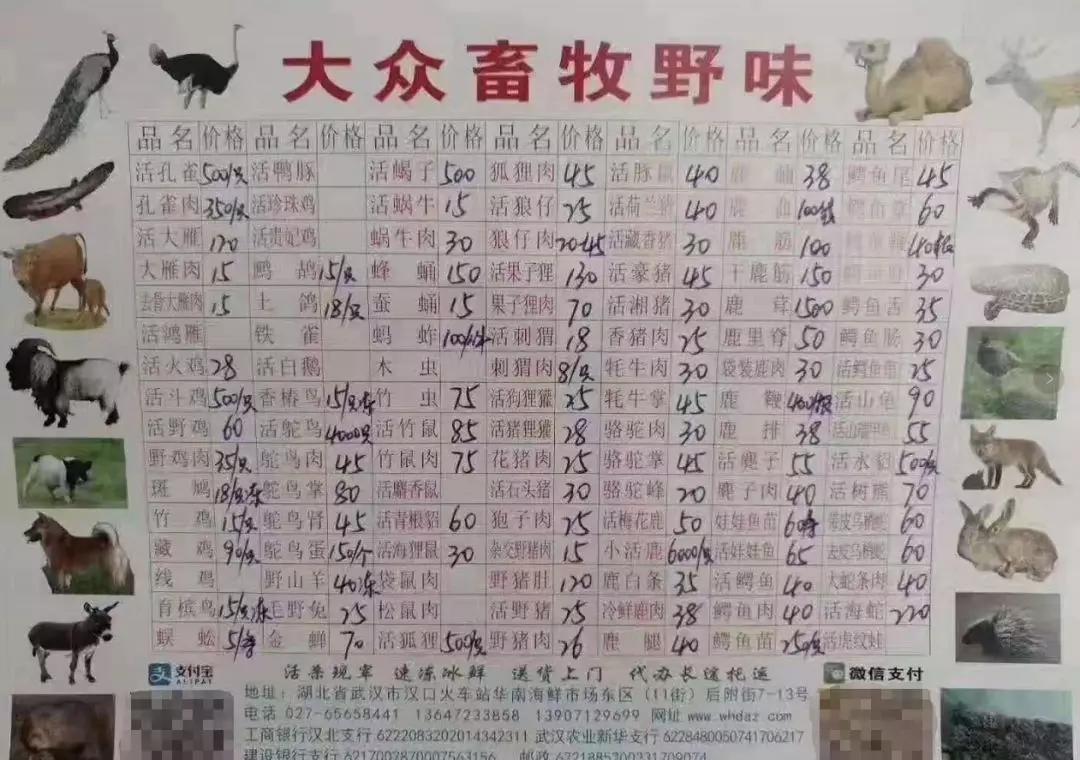 大众畜牧野味
品名 价格 品名 价格 品名 价格 品名 价格 品名 价格 品名 价格 品名 价格
活孔雀 500/只 活鸭豚 活蝎子 500 狐狸肉 45 活豚鼠 40 鹿 38 鳄鱼尾 45
孔雀肉 350/只 活珍珠鸡 活蜗牛 15 活狼仔 25 活荷兰猪 40 鹿血 鳄鱼掌 60
活大雁 120 活贵妃鸡 蜗牛肉 30 狼仔肉 20-45 活藏香猪 30 鹿筋 100
大雁肉 15 鹧鸪 15/只 蜂蛹 150 活果子狸 130 活豪猪 45 干鹿筋 150 30
去骨大雁肉 15 土鸽 18/只 蚕蛹 15 果子狸肉 70 活湘猪 30 鹿茸 1500 鳄鱼舌 35
活鸿雁 铁雀 蚂蚱 活刺猬 18 香猪肉 25 鹿里脊 50 鳄鱼肠 30
活火鸡 28 活白鹅 木虫 刺猬肉 8/只 牦牛肉 30 袋装鹿肉 30 25
活斗鸡 500/只 香椿鸟 竹虫 75 活狗狸獾 25 牦牛掌 45 鹿鞭 活山龟 90
活野鸡 60 活鸵鸟 4000只 活竹鼠 85 活猪狸獾 28 骆驼肉 30 鹿排 38 55
野鸡肉 35/只 鸵鸟肉 45 竹鼠肉 75 花猪肉 25 骆驼掌 45 活麂子 55 活水貂 500/只
斑鸠 18/只冻 鸵鸟掌 80 活麝香鼠 活石头猪 30 骆驼峰 20 麂子肉 40 活树熊 70
竹鸡 15/只 鸵鸟肾 45 活青根貂 60 狍子肉 25 活梅花鹿 50 娃娃鱼苗 带皮乌梢蛇 60
藏鸡 90/只 鸵鸟蛋 150/个 活海狸鼠 30 杂交野猪肉 15 小活鹿 6000/只 活娃娃鱼 65 去皮乌梢蛇 60
线鸡 野山羊 40冻 袋鼠肉 野猪肚 120 鹿白条 35 活鳄鱼 40 大蛇条肉 40
育槟鸟 15/只冻 毛野兔 25 松鼠肉 活野猪 25 冷鲜鹿肉 38 鳄鱼肉 40 活海蛇 220
蜈蚣 金蝉 70 活狐狸 500/只 野猪肉 26 鹿腿 40 鳄鱼苗 250/只 活虎纹蛙
支付宝 ALIPAY 活杀现宰 速冻冰鲜 送货上门 代办长途托运 微信支付
地址：湖北省武汉市汉口火车站华南海鲜市场东区（11街）后附街7-13号
电话 027-65658441 13647233858 13907129699 网址 www.whdaz.com
工商银行汉北支行 6222083202014342311 武汉农业新华支行 6228480050741706217
建设银行支行 6217002870007563156 邮政 6221885200231709074